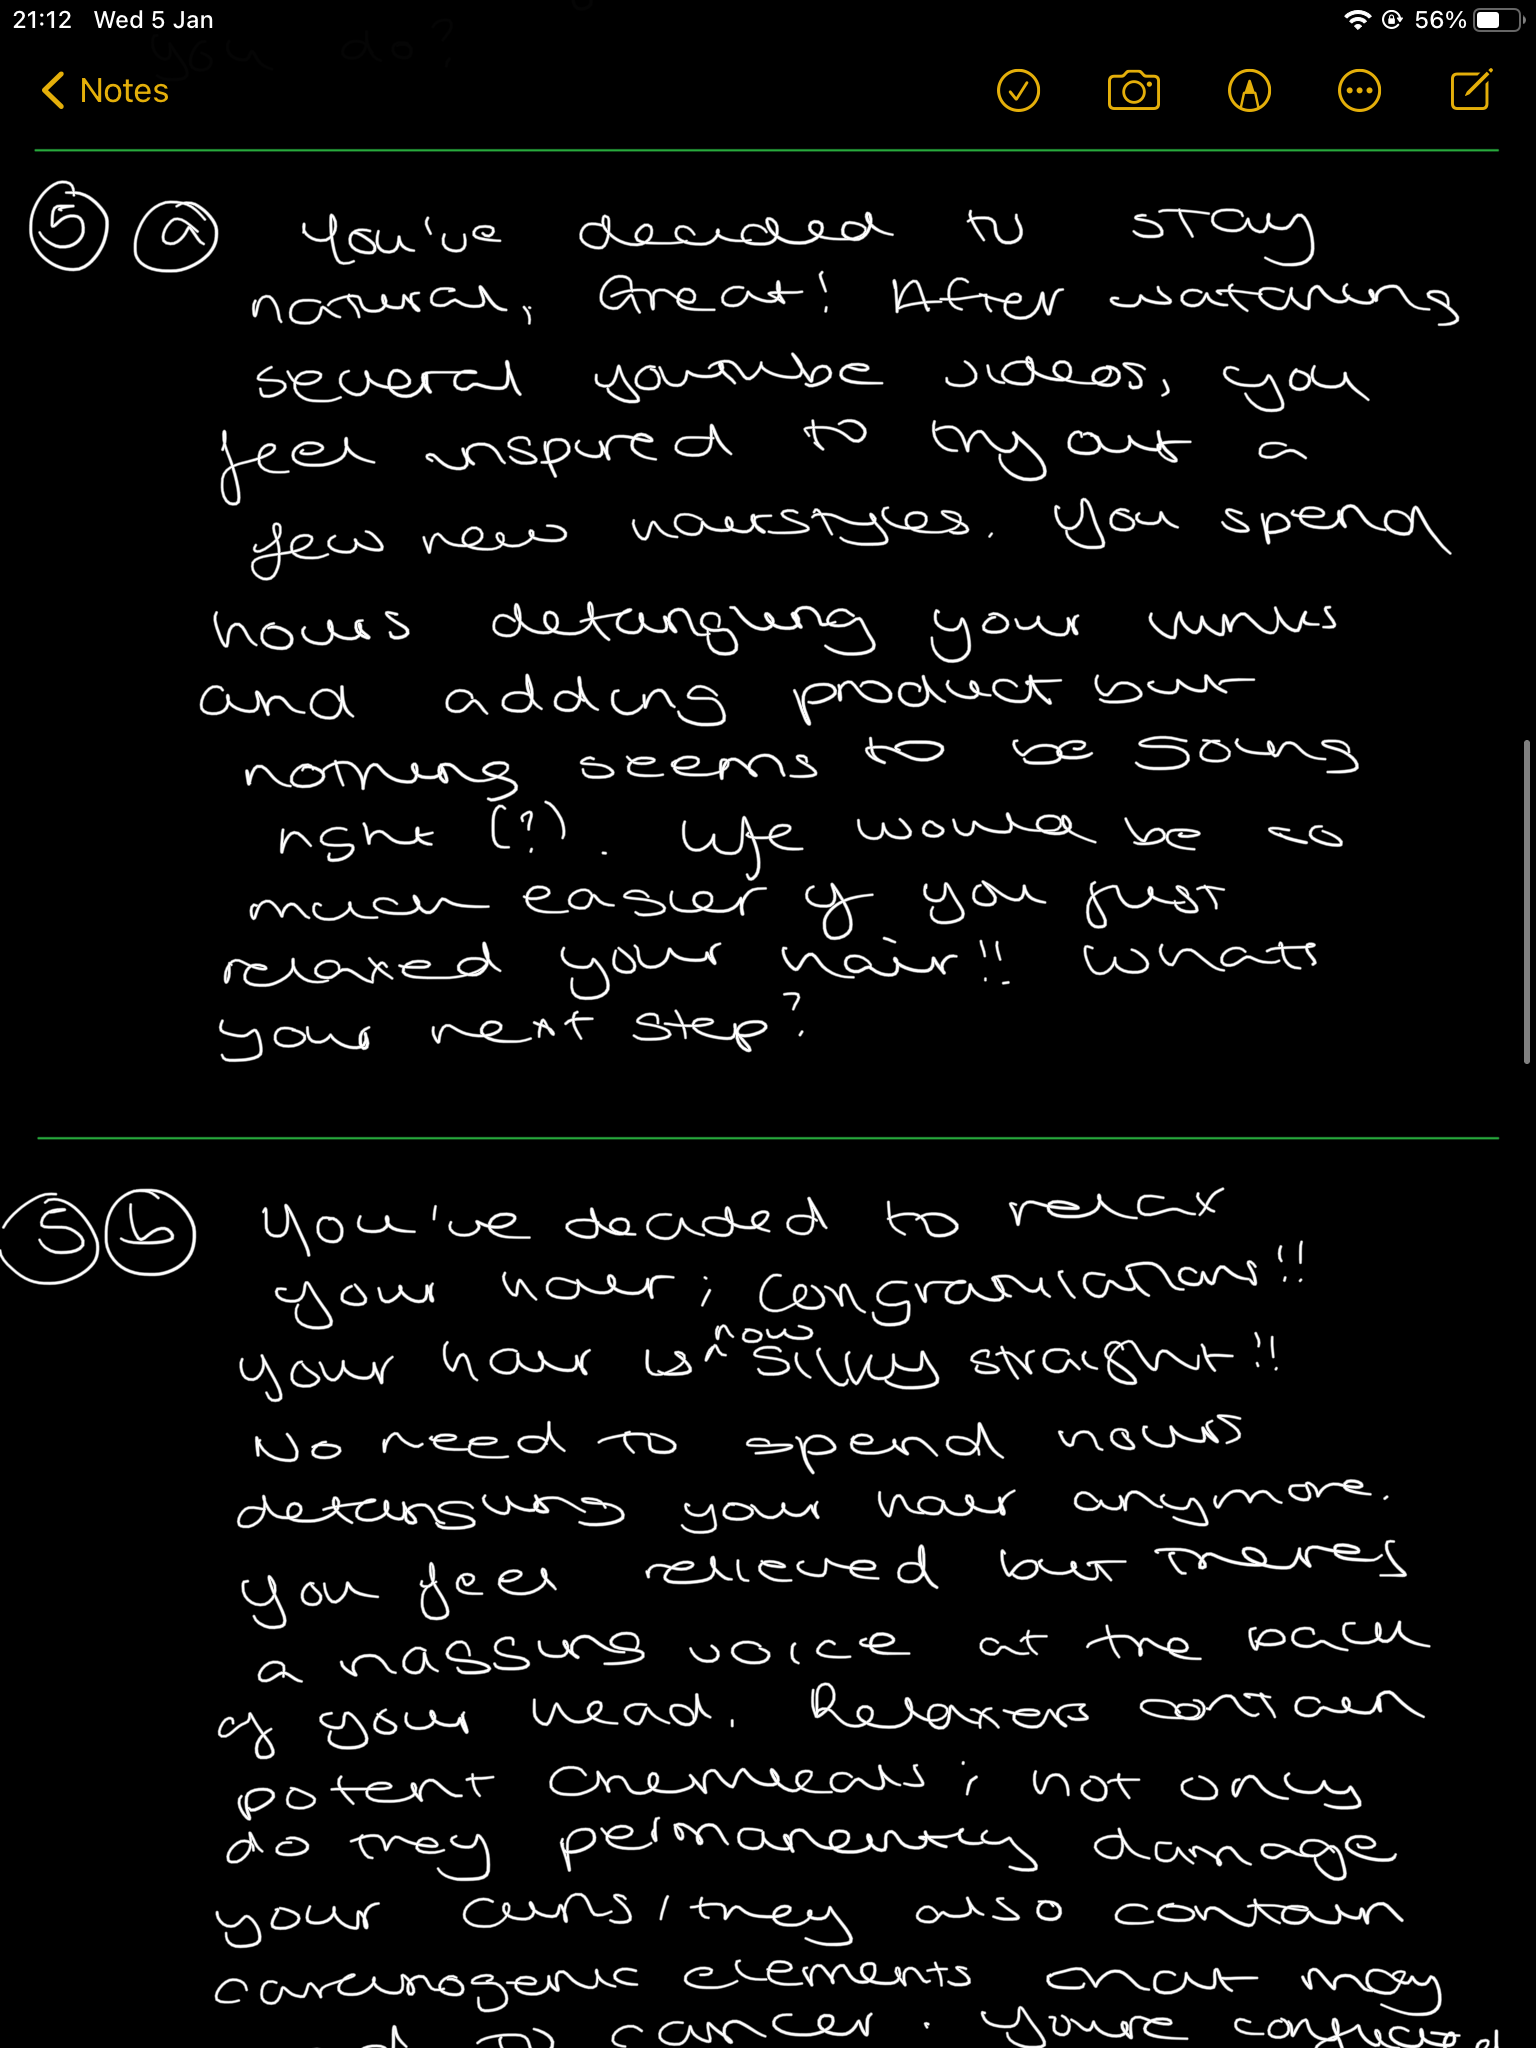 21:12 Wed 5 Jan 56%
you do?
Notes
5 a You've decided to stay
natural, Great! After watching
several youtube videos, you
feel inspired to try out a
few new hairstyles. You spend
hours detangling your kinks
and adding product but
nothing seems to be going
right (?). Life would be so
much easier if you just
relaxed your hair!! Whats
your next step?
5 b You've decided to relax
your hair; Congratulations!!
your hair is ^now silky straight!!
No need to spend hours
detangling your hair anymore.
you feel relieved but theres
a nagging voice at the back
of your head. Relaxers contain
potent chemicals; not only
do they permanently damage
your curls, they also contain
carcinogenic elements that may
lead to cancer. You're conflicted